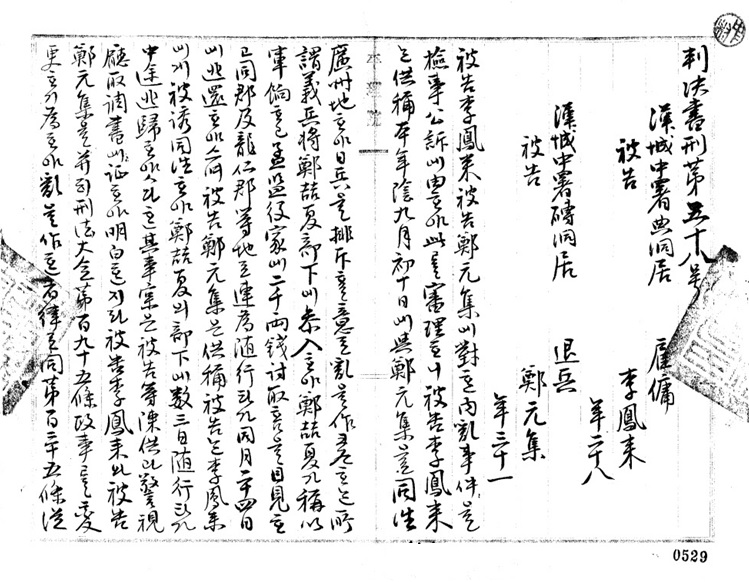 判決書刑第五十八号
漢城中署典洞居 雇傭
被告 李鳳来
年二十八
漢城中署磚洞居 退兵
被告 鄭元集
年三十一
被告李鳳来被告鄭元集에對ᄒᆞᆫ內亂事件을
檢事公訴에由ᄒᆞ야此를審理ᄒᆞ니被告李鳳来
은供稱本年陰九月初十日에與鄭元集으로同往
廣州地ᄒᆞ야日兵을排斥ᄒᆞᆯ意로亂을作ᄒᆞ랴ᄒᆞᄂᆞᆫ所
謂義兵將鄭喆夏部下에叅入ᄒᆞ야鄭喆夏가稱以
軍餉ᄒᆞ고孟監役家에二千兩錢討取ᄒᆞᆷ을目見ᄒᆞ
고同郡及龍仁郡等地로連爲随行타가同月二十四日
에逃還ᄒᆞ야스며被告鄭元集은供稱被告ᄂᆞᆫ李鳳来
에게被誘同往ᄒᆞ야鄭喆夏의部下에数三日随行타가
中途逃歸ᄒᆞ야다ᄒᆞᆫ其事実은被告等陳供과警視
廳取調書에証ᄒᆞ야明白ᄒᆞᆫ지라被告李鳳来와被告
鄭元集을并刑法大全第百九十五條政事를變
更ᄒᆞ기爲ᄒᆞ야亂을作ᄒᆞᆫ者律로同第百三十五條從
0529